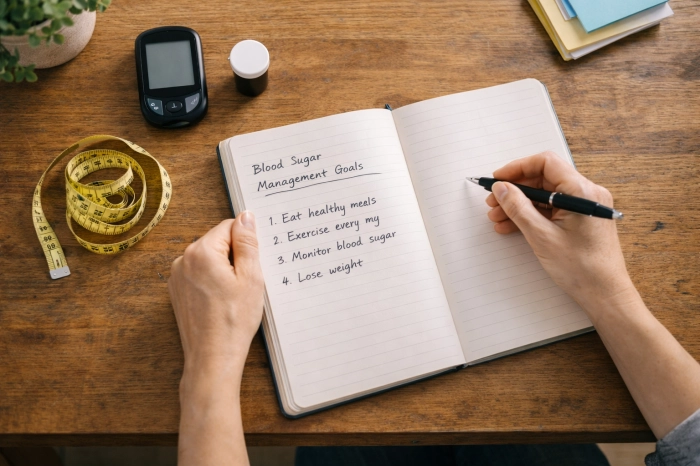 Blood Sugar
Management Goals
1. Eat healthy meels
2. Exercise every my
3. Monitor blood sugar
4. Lose weight